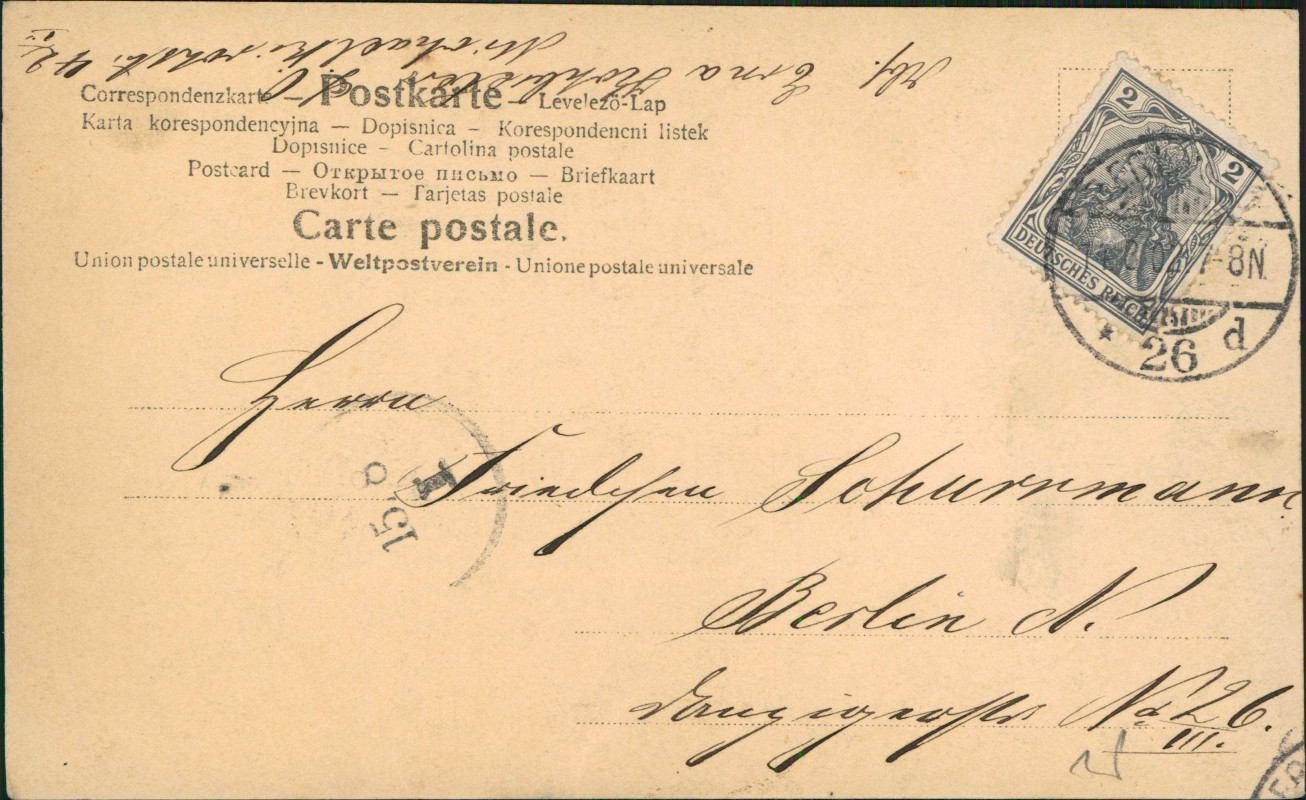 Abs. Erna
Michaelkirchstr. 42
Correspondenzkarte — Postkarte — Levelező-Lap
Karta korespondencyjna — Dopisnica — Korespondencni listek
Dopisnice — Cartolina postale
Postcard — Открытое письмо — Briefkaart
Brevkort — Tarjetas postale
Carte postale.
Union postale universelle - Weltpostverein - Unione postale universale
2 2
DEUTSCHES REICH
7-8N
* 26 d
Herrn
15 8
Friedchen Schurrmann
Berlin N.
Danzigerstr No 26.
III.